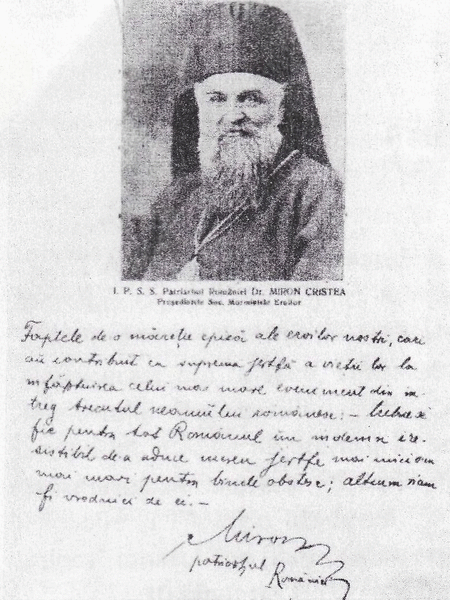 I. P. S. S. Patriarhul României Dr. MIRON CRISTEA
Președintele Soc. Mormintele Eroilor
Faptele de o măreție epică ale eroilor noștri, cari
au contribuit cu suprema jertfă a vieții lor la
înfăptuirea celui mai mare eveniment din în-
treg trecutul neamului românesc: – trebue să
fie pentru tot Românul un îndemn ire-
sistibil de a aduce mereu jertfe mai mici ori
mai mari pentru binele obștesc; altcum n'am
fi vrednici de ei. –
Miron
patriarhul
României